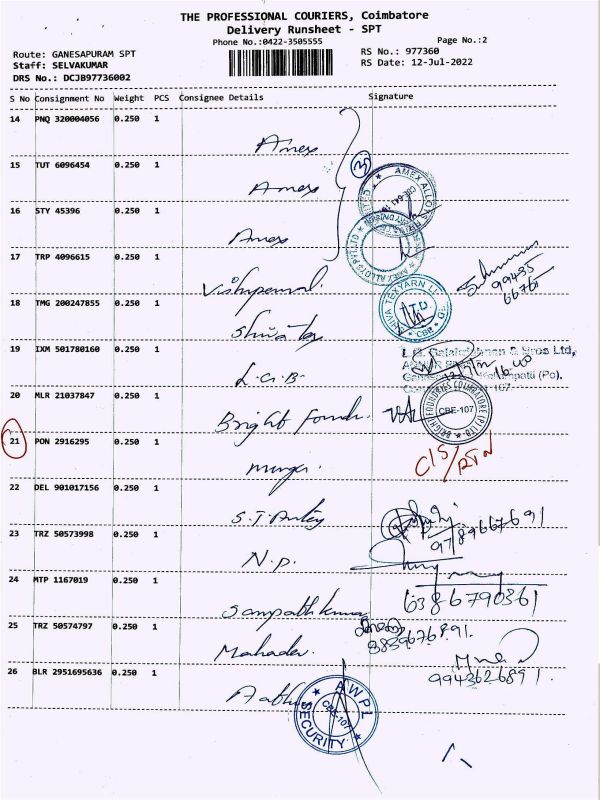 THE PROFESSIONAL COURIERS, Coimbatore
Delivery Runsheet - SPT
Phone No.:0422-3505555
Page No.:2
Route: GANESAPURAM SPT
RS No.: 977360
Staff: SELVAKUMAR
RS Date: 12-Jul-2022
DRS No.: DCJB97736002
S No Consignment No Weight PCS Consignee Details Signature
14 PNQ 320004056 0.250 1
Amex
15 TUT 6096454 0.250 1
Amex
AMEX ALLOYS
16 STY 45396 0.250 1
Amex
AMEX ALLOYS PVT LTD
17 TRP 4096615 0.250 1
99435
18 TMG 200247855 0.250 1
Shiva tex
SHIVA TEXYARN LTD
CBE
19 IXM 501780160 0.250 1
L.G.B.
20 MLR 21037847 0.250 1
Bright Found.
BRIGHT FOUNDRIES COIMBATORE (P) LTD
CBE-107
21 PON 2916295 0.250 1
Muruga.
C/S/RTN
22 DEL 901017156 0.250 1
9789667691
23 TRZ 50573998 0.250 1
N.P.
6386790361
24 MTP 1167019 0.250 1
Sampath kumar
25 TRZ 50574797 0.250 1
Mahadev.
26 BLR 2951695636 0.250 1
9943626891.
AWPL
CBE-107
SECURITY